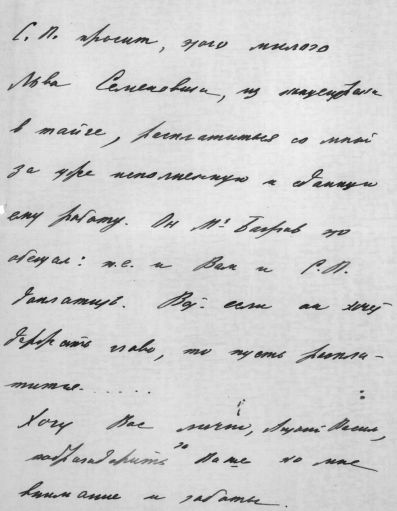 С. П. просит, этого милого
Льва Семеновича, из
в тайге, расплатиться со мной
за уже исполненную и сданную
ему работу. Он Mr это
обещал: т.е. и Вам и С. П.
доплатит. если он хочет
держать слово, то пусть распла-
тится.....
Хочу Вас лично,
поблагодарить за Ваше ко мне
внимание и заботы.